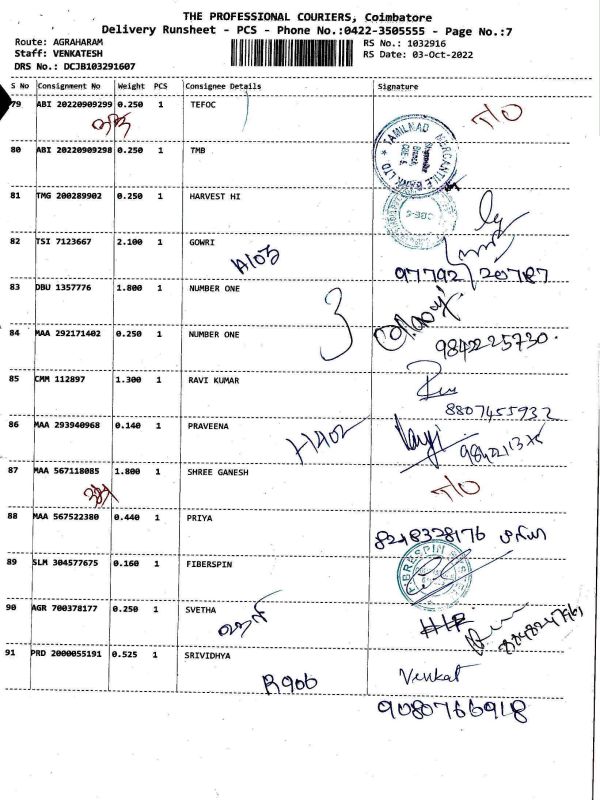 THE PROFESSIONAL COURIERS, Coimbatore
Delivery Runsheet - PCS - Phone No.:0422-3505555 - Page No.:7
Route: AGRAHARAM
Staff: VENKATESH
DRS No.: DCJB103291607
RS No.: 1032916
RS Date: 03-Oct-2022
S No Consignment No Weight PCS Consignee Details Signature
79 ABI 20220909299 0.250 1 TEFOC
80 ABI 20220909298 0.250 1 TMB
TAMILNAD MERCANTILE BANK LTD.
81 TMG 200289902 0.250 1 HARVEST HI
82 TSI 7123667 2.100 1 GOWRI
A103
97792 20787
83 DBU 1357776 1.800 1 NUMBER ONE
3
84 MAA 292171402 0.250 1 NUMBER ONE
9842225730
85 CMM 112897 1.300 1 RAVI KUMAR
8807455932
86 MAA 293940968 0.140 1 PRAVEENA
H402
87 MAA 567118085 1.800 1 SHREE GANESH
88 MAA 567522380 0.440 1 PRIYA
8248328176
89 SLM 304577675 0.160 1 FIBERSPIN
FIBRESPIN
90 AGR 700378177 0.250 1 SVETHA
91 PRD 2000055191 0.525 1 SRIVIDHYA
R906
Venkat
9080766918